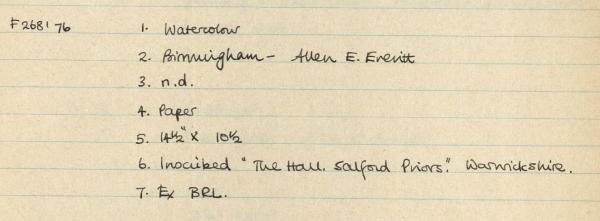 F268'76 1. Watercolour
2. Birmingham - Allen E. Everitt
3. n.d.
4. Paper
5. 14½" X 10½
6. Inscribed "The Hall. Salford Priors." Warwickshire.
7. Ex BRL.